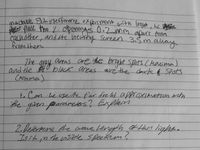 slit interference experiment with light, he
2 openings 0.2 mm apart from
eachother, and the viewing screen 3.5 m away
from them
The gray areas are the bright spots (maxima)
and the black areas are the dark spots
(minima)
1. Can he use the Far field approximation with
the given parameters? Explain
2. Determine the wave length of this light.
Is it in the visible spectrum?